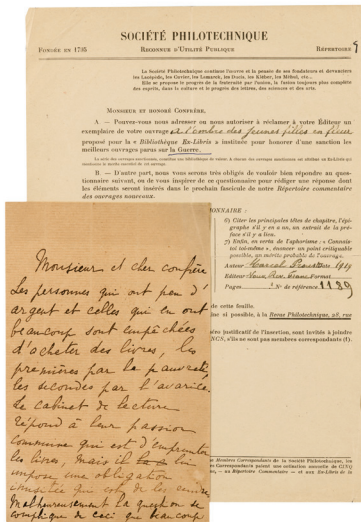 SOCIÉTÉ PHILOTECHNIQUE
FONDÉE EN 1795 RECONNUE D'UTILITÉ PUBLIQUE RÉPERTOIRE
La Société Philotechnique continue l'œuvre et la pensée de ses fondateurs et devanciers
les Lacépède, les Cuvier, les Lamarck, les Ducis, les Kléber, les Méhul, etc.
et se propose le progrès de la fraternité par l'union, la fusion toujours plus complète
des esprits, dans la culture et le progrès des lettres, des sciences et des arts.
MONSIEUR ET HONORÉ CONFRÈRE,
A. — Pouvez-vous nous adresser ou nous autoriser à réclamer à votre Éditeur un
exemplaire de votre ouvrage A l'ombre des jeunes filles en fleur
proposé pour la « Bibliothèque Ex-Libris » instituée pour honorer d'une sanction les
meilleurs ouvrages parus sur la Guerre.
B. — D'autre part, nous vous serons très obligés de vouloir bien répondre au question-
naire suivant, ou de vous inspirer de ce questionnaire pour rédiger une réponse dont
les éléments seront insérés dans le prochain fascicule de notre Répertoire commentaire
des ouvrages nouveaux.
ONNAIRE :
6) Citer les principales têtes de chapitre, l'épi-
graphe s'il y en a une, un extrait de la pré-
face s'il y a lieu.
7) Enfin, en vertu de l'aphorisme : « Connais-
toi toi-même », énoncer un point critiquable
possible, un mérite probable de l'ouvrage.
Auteur Marcel Proust 1919
Editeur
Pages N° de référence 1129
de cette feuille.
et si possible, à la Revue Philotechnique, 28, rue
justificatif de l'insertion, sont invités à joindre
Monsieur et cher confrère
Les personnes qui ont peu d'
argent et celles qui en ont
beaucoup sont empêchées
d'acheter des livres, les
premières par la pauvreté
les secondes par l'avarice.
Le cabinet de lecture
répond à leur passion
commune qui est d'emprunter
les livres, mais il lui
impose une obligation
qui est de les rendre
Malheureusement la question se
complique de ceci que beaucoup